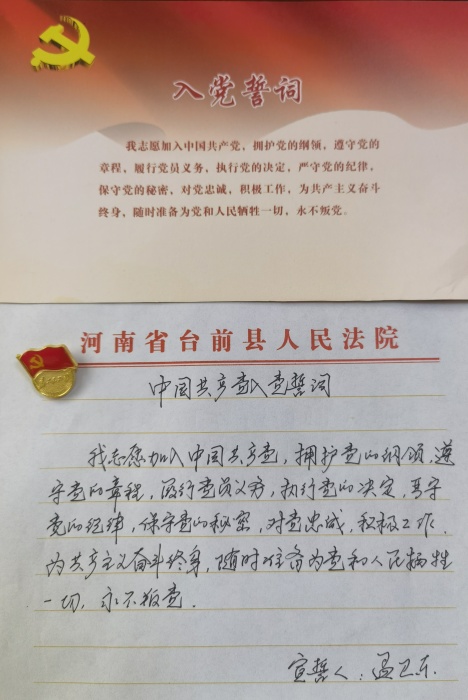 入党誓词
我志愿加入中国共产党，拥护党的纲领，遵守党的
章程，履行党员义务，执行党的决定，严守党的纪律，
保守党的秘密，对党忠诚，积极工作，为共产主义奋斗
终身，随时准备为党和人民牺牲一切，永不叛党。
河南省台前县人民法院
中国共产党入党誓词
我志愿加入中国共产党，拥护党的纲领，遵
守党的章程，履行党员义务，执行党的决定，严守
党的纪律，保守党的秘密，对党忠诚，积极工作，
为共产主义奋斗终身，随时准备为党和人民牺牲
一切，永不叛党．
宣誓人：孟卫东